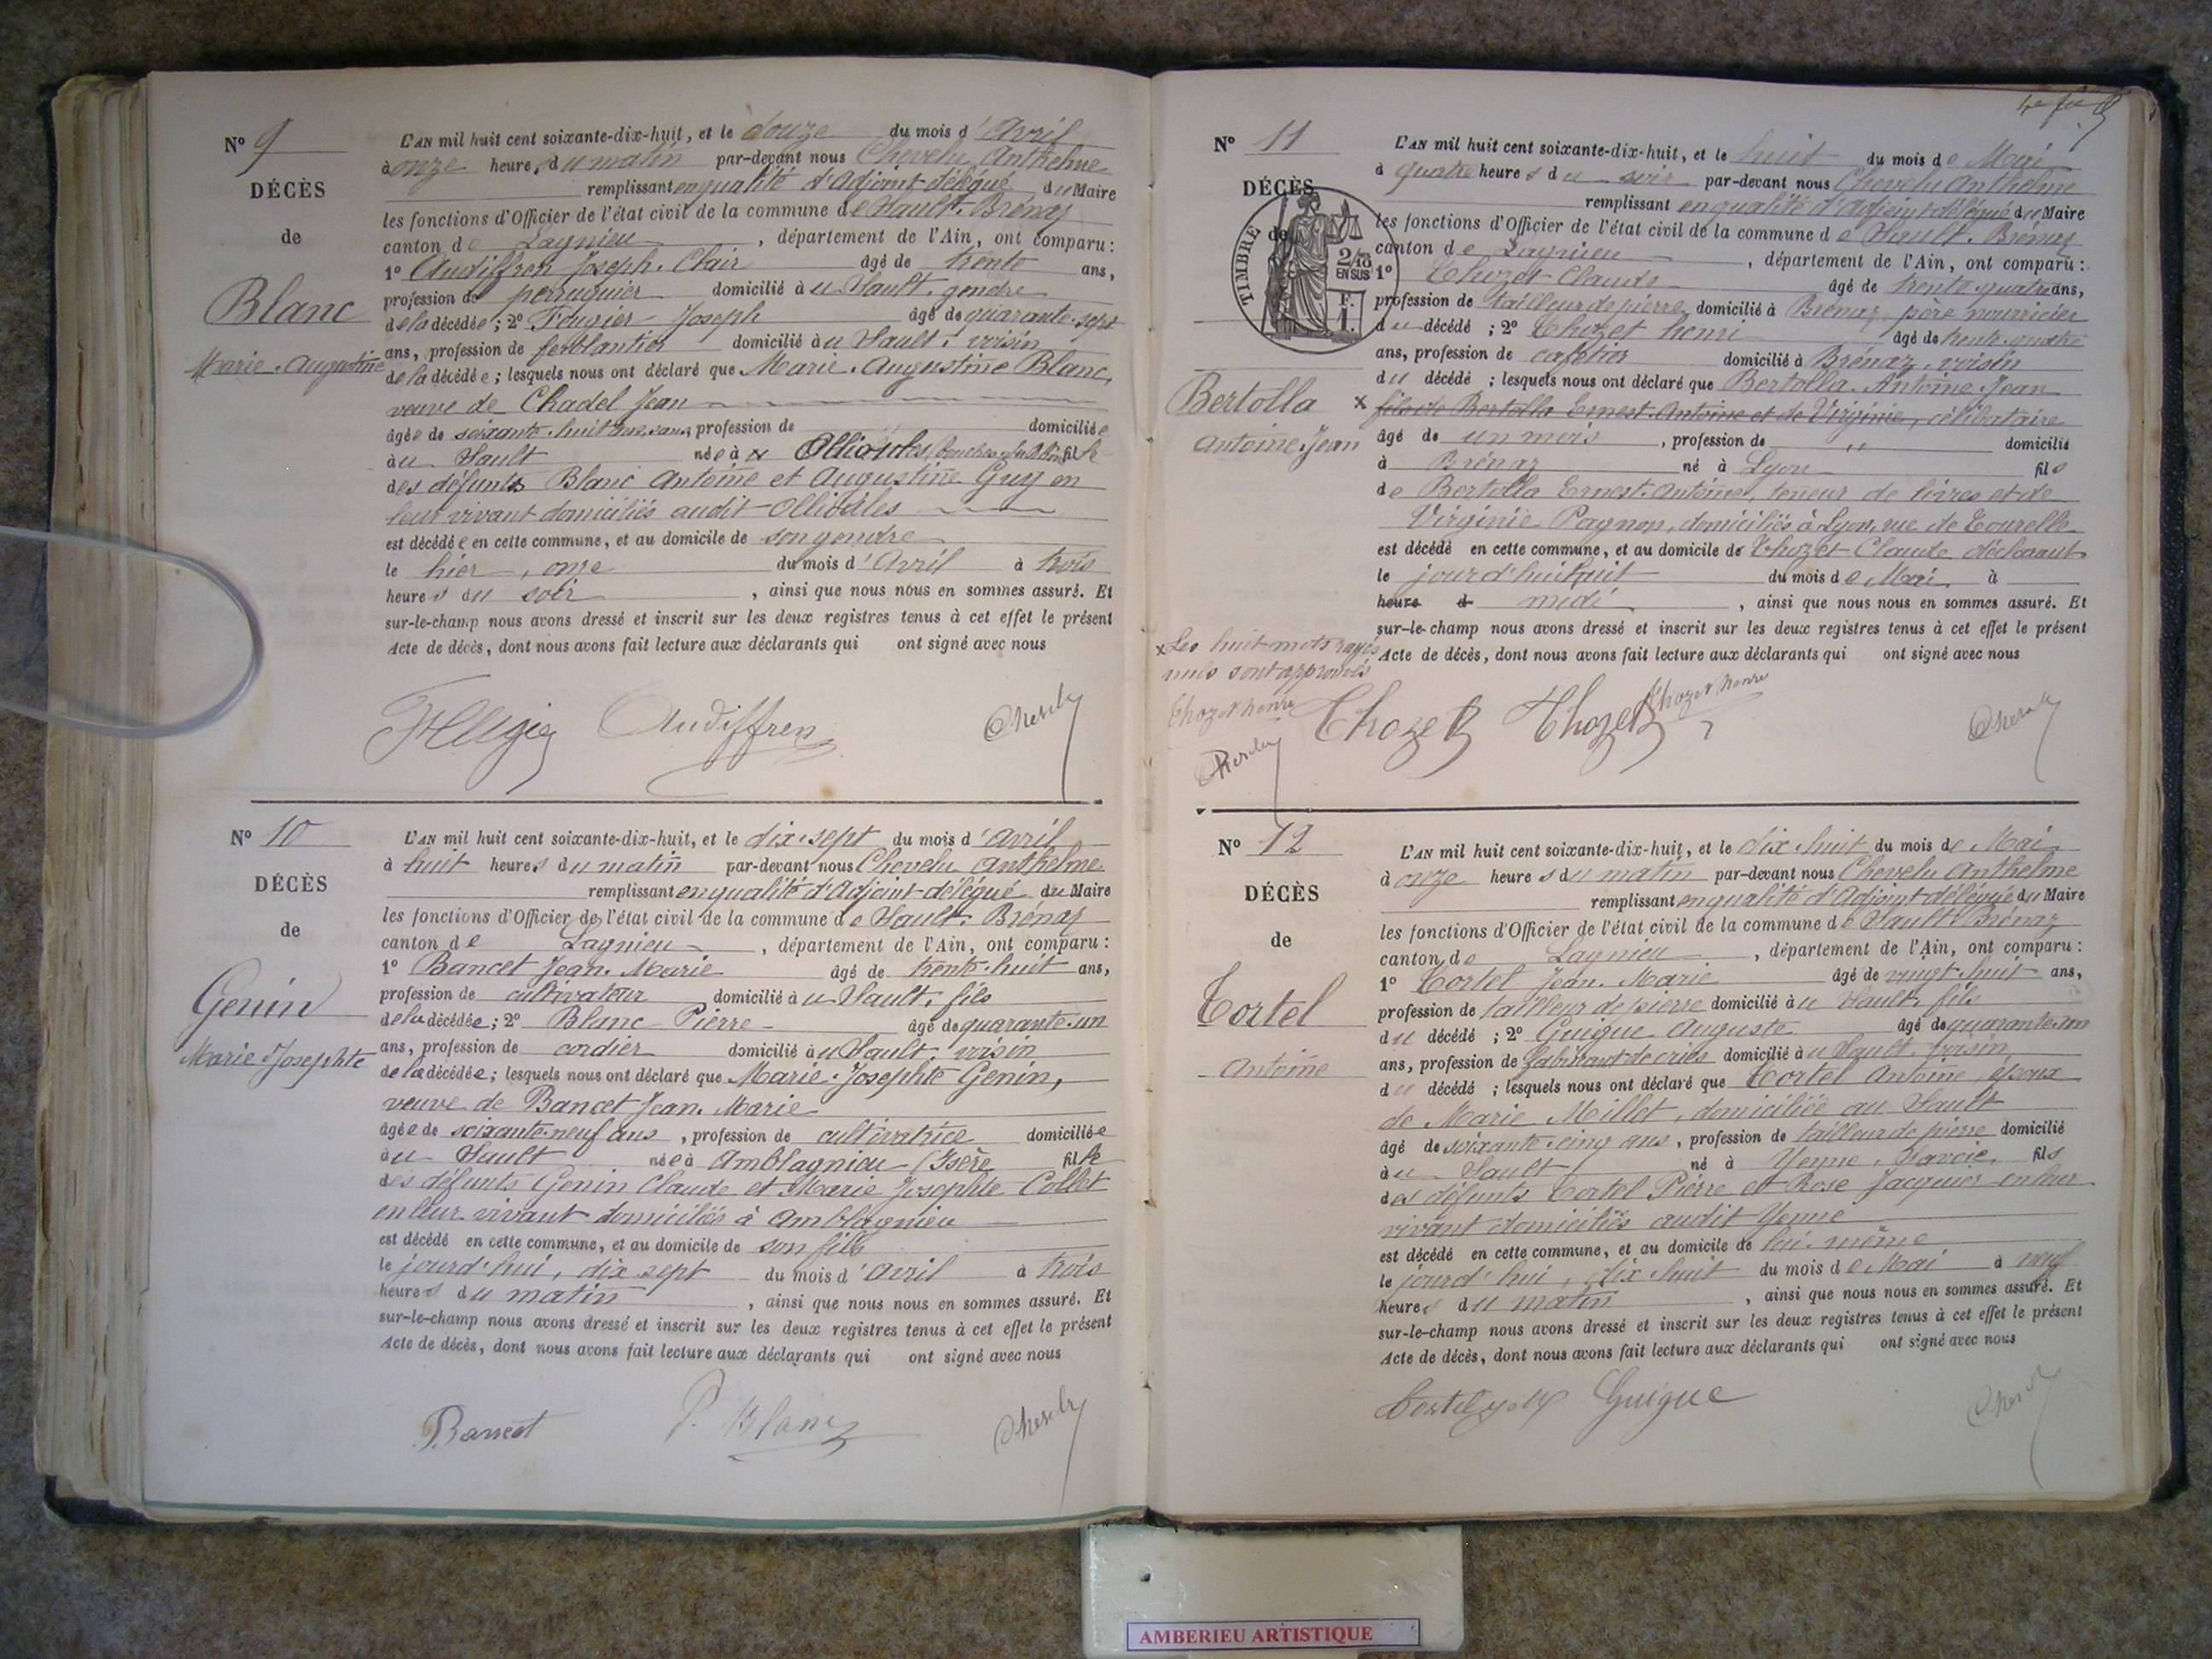 N° 9
DÉCÈS
de
Blanc
Marie-Augustine
L'AN mil huit cent soixante-dix-huit, et le douze du mois d'Avril
à onze heures du matin par-devant nous Chevelu Anthelme
remplissant en qualité d'Adjoint délégué du Maire
les fonctions d'Officier de l'état civil de la commune de Sault-Brénaz
canton de Lagnieu, département de l'Ain, ont comparu :
1° Audiffren Joseph-Clair âgé de trente ans,
profession de perruquier domicilié à u Sault, gendre
de la décédée ; 2° Fougier Joseph âgé de quarante-sept
ans, profession de ferblantier domicilié à u Sault, voisin
de la décédée ; lesquels nous ont déclaré que Marie-Augustine Blanc,
veuve de Chadel Jean
âgée de soixante-huit ans, sans profession de domiciliée
à u Sault née à Ollioules, fille
des défunts Blanc Antoine et Augustine Guy en
leur vivant domiciliés audit Ollioules
est décédée en cette commune, et au domicile de son gendre
le hier, onze du mois d'Avril à trois
heures du soir, ainsi que nous nous en sommes assuré. Et
sur-le-champ nous avons dressé et inscrit sur les deux registres tenus à cet effet le présent
Acte de décès, dont nous avons fait lecture aux déclarants qui ont signé avec nous
Audiffren Chevelu
N° 10
DÉCÈS
de
Genin
Marie Josephte
L'AN mil huit cent soixante-dix-huit, et le dix-sept du mois d'Avril
à huit heures du matin par-devant nous Chevelu Anthelme
remplissant en qualité d'Adjoint délégué du Maire
les fonctions d'Officier de l'état civil de la commune de Sault-Brénaz
canton de Lagnieu, département de l'Ain, ont comparu :
1° Bancet Jean-Marie âgé de trente-huit ans,
profession de cultivateur domicilié à u Sault, fils
de la décédée ; 2° Blanc Pierre âgé de quarante-un
ans, profession de cordier domicilié à u Sault, voisin
de la décédée ; lesquels nous ont déclaré que Marie-Josephte Genin,
veuve de Bancet Jean-Marie
âgée de soixante-neuf ans, profession de cultivatrice domiciliée
à u Sault née à Amblagnieu (Isère fille
des défunts Genin Claude et Marie Josephte Collet
en leur vivant domiciliés à Amblagnieu
est décédé en cette commune, et au domicile de son fils
le jourd'hui, dix sept du mois d'Avril à trois
heures du matin, ainsi que nous nous en sommes assuré. Et
sur-le-champ nous avons dressé et inscrit sur les deux registres tenus à cet effet le présent
Acte de décès, dont nous avons fait lecture aux déclarants qui ont signé avec nous
Bancet P. Blanc Chevelu
N° 11
DÉCÈS
de
TIMBRE
2/10
EN SUS
1 F.
Bertolla
Antoine-Jean
L'AN mil huit cent soixante-dix-huit, et le huit du mois de Mai
à quatre heures du soir par-devant nous Chevelu Anthelme
remplissant en qualité d'Adjoint délégué du Maire
les fonctions d'Officier de l'état civil de la commune de Sault-Brénaz
canton de Lagnieu, département de l'Ain, ont comparu :
1° Thozet Claude âgé de trente-quatre ans,
profession de tailleur de pierre domicilié à Brénaz, père nourricier
du décédé ; 2° Thozet henri âgé de trente-quatre
ans, profession de cafetier domicilié à Brénaz, voisin
du décédé ; lesquels nous ont déclaré que Bertolla Antoine-Jean
x fils de Bertolla Ernest-Antoine et de Virginie, célibataire
âgé de un mois, profession de ,, domicilié
à Brénaz né à Lyon fils
de Bertolla Ernest-Antoine, teneur de livres et de
Virginie Pagnon, domiciliés à Lyon, rue de Tourelle
est décédé en cette commune, et au domicile de Thozet Claude déclarant
le jourd'hui huit du mois de Mai à
heure d midi, ainsi que nous nous en sommes assuré. Et
sur-le-champ nous avons dressé et inscrit sur les deux registres tenus à cet effet le présent
Acte de décès, dont nous avons fait lecture aux déclarants qui ont signé avec nous
x Les huit mots rayés
nuls sont approuvés
Thozet henri Thozet Thozet Thozet henri Chevelu
Chevelu
N° 12
DÉCÈS
de
Tortel
Antoine
L'AN mil huit cent soixante-dix-huit, et le dix-huit du mois de Mai
à onze heures du matin par-devant nous Chevelu Anthelme
remplissant en qualité d'Adjoint délégué du Maire
les fonctions d'Officier de l'état civil de la commune de Sault-Brénaz
canton de Lagnieu, département de l'Ain, ont comparu :
1° Tortel Jean-Marie âgé de vingt-huit ans,
profession de tailleur de pierre domicilié à u Sault, fils
du décédé ; 2° Guigue Auguste âgé de quarante-un
ans, profession de fabricant de crics domicilié à u Sault, voisin
du décédé ; lesquels nous ont déclaré que Tortel Antoine, époux
de Marie Millet, domiciliée au Sault
âgé de soixante-cinq ans, profession de tailleur de pierre domicilié
à u Sault né à Yenne, Savoie, fils
des défunts Tortel Pierre et Rose Jacquier en leur
vivant domiciliés audit Yenne
est décédé en cette commune, et au domicile de lui-même
le jourd'hui, dix-huit du mois de Mai à neuf
heures du matin, ainsi que nous nous en sommes assuré. Et
sur-le-champ nous avons dressé et inscrit sur les deux registres tenus à cet effet le présent
Acte de décès, dont nous avons fait lecture aux déclarants qui ont signé avec nous
Guigue Chevelu
AMBERIEU ARTISTIQUE